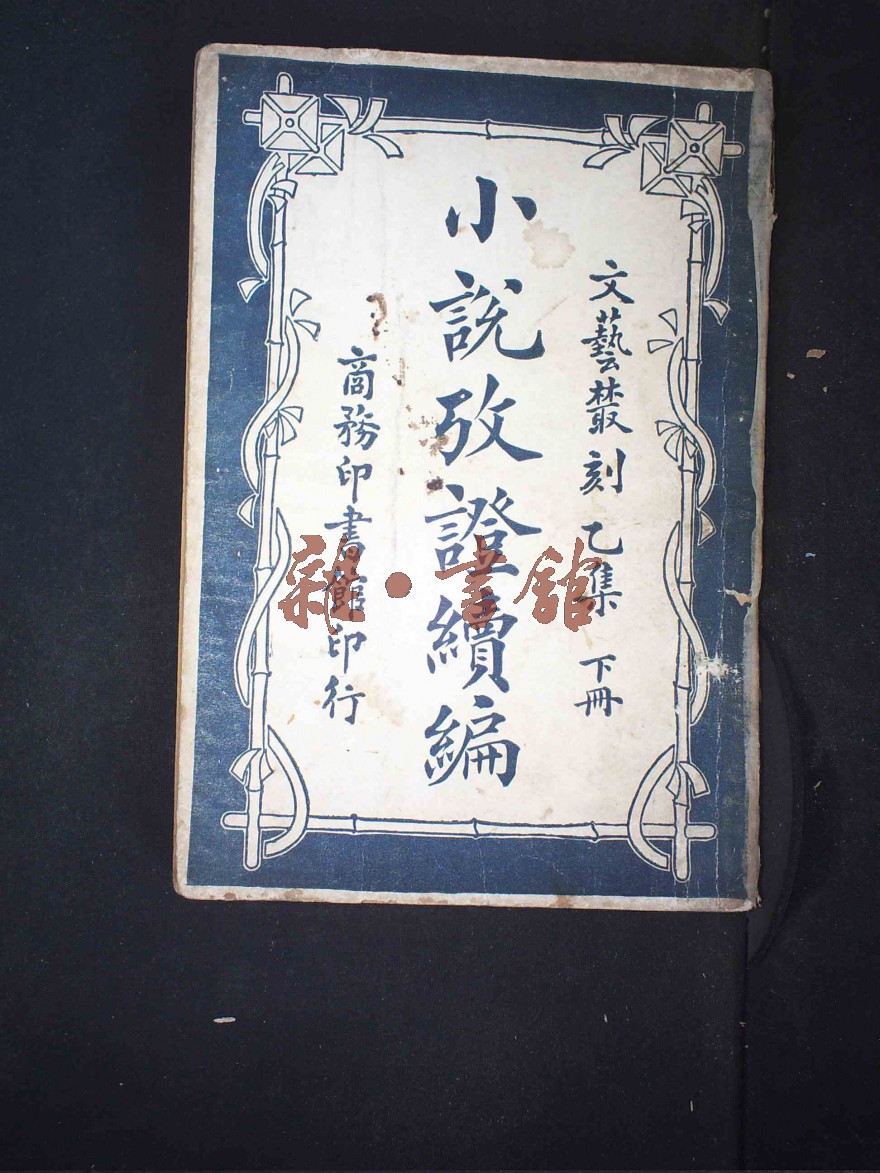 文藝叢刻乙集 下冊
小說攷證續編
商務印書館印行
雜·書館